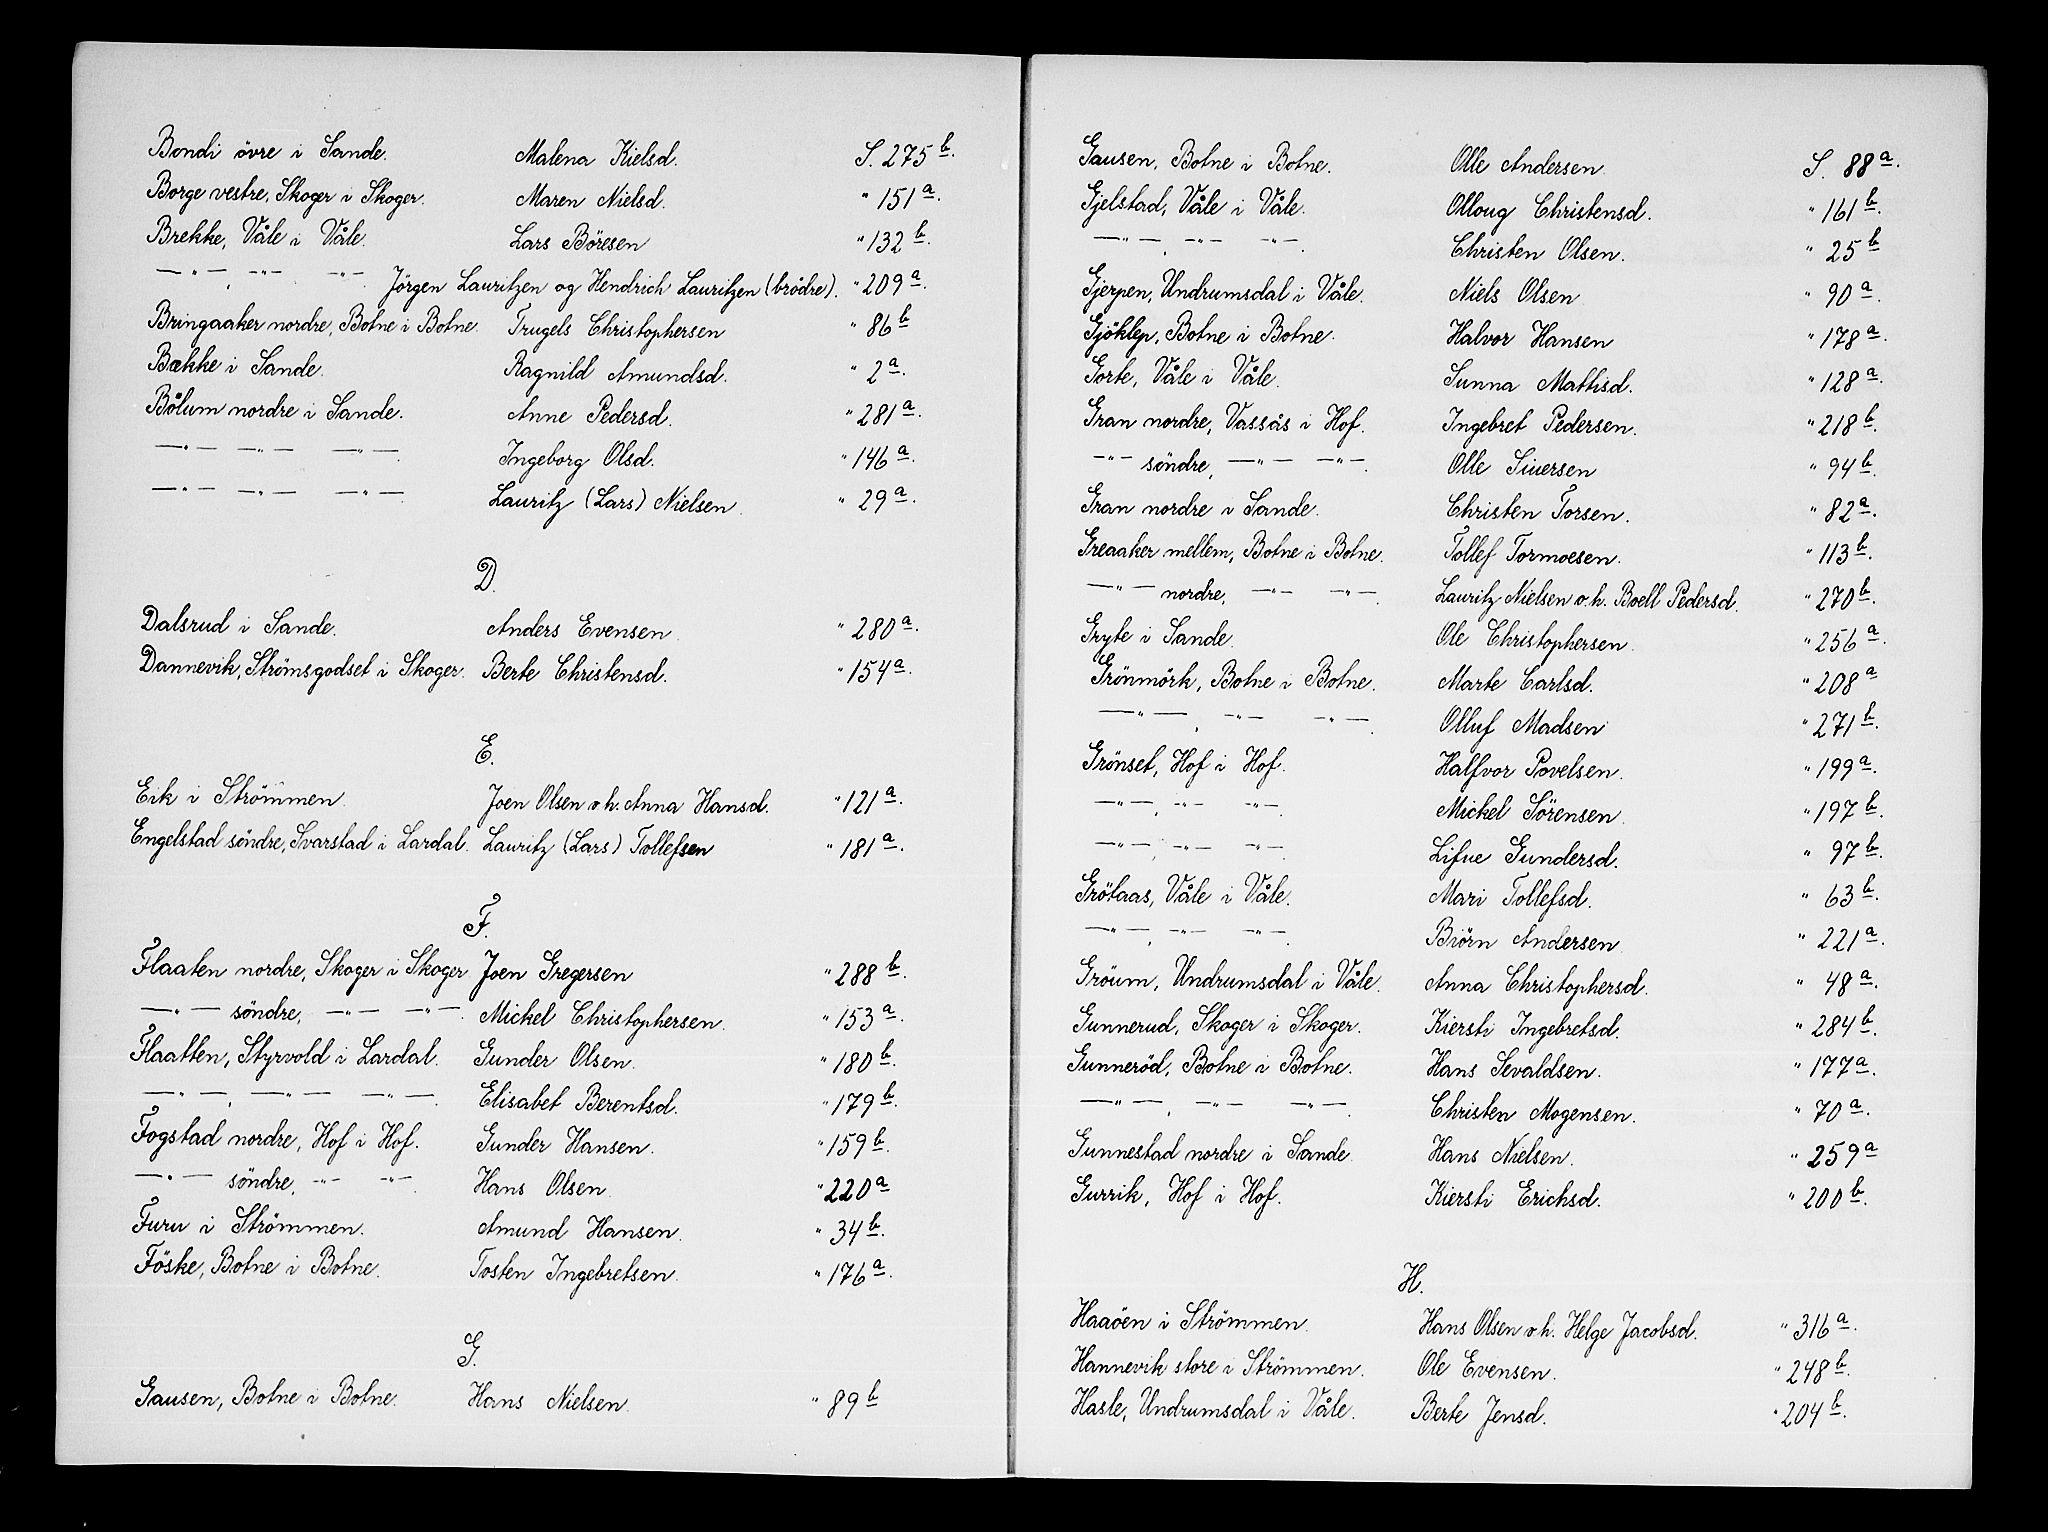 Bondi övre i Sande. Malena Kielsd. S. 275 b.
Borge vestre, Skoger i Skoger. Maren Nielsd. " 151 a.
Brekke, Våle i Våle. Lars Böresen " 132 b.
—"—, —"— —"— Jörgen Lauritzen og Hendrich Lauritzen (brödre). " 209 a.
Bringaaker nordre, Botne i Botne. Trugels Christophersen " 86 b
Bække i Sande. Ragnild Amundsd. " 2 a.
Bölum nordre i Sande. Anne Pedersd. " 281 a.
—"— —"— —"—. Ingeborg Olsd. " 146 a.
—"— —"— —"—. Lauritz (Lars) Nielsen. " 29 a.
D.
Dalsrud i Sande. Anders Evensen. " 280 a.
Dannevik, Strömsgodset i Skoger. Berte Christensd. " 154 a.
E.
Eik i Strömmen. Joen Olsen o.h. Anna Hansd. " 121 a.
Engelstad söndre, Svarstad i Lardal. Lauritz (Lars) Tollefsen " 181 a.
F.
Flaaten nordre, Skoger i Skoger Joen Gregersen " 288 b.
—"— söndre, —"— —"—. Mickel Christophersen. " 153 a.
Flaatten, Styrvold i Lardal. Gunder Olsen. " 180 b.
—"—, —"— —"—. Elisabet Berentsd. " 179 b.
Fogstad nordre, Hof i Hof. Gunder Hansen. " 159 b.
—"— söndre, —"— —"—. Hans Olsen. " 220 a
Furu i Strömmen. Amund Hansen. " 34 b.
Föske, Botne i Botne. Tosten Ingebretsen. " 176 a.
G.
Gausen, Botne i Botne. Hans Nielsen. " 89 b
Gausen, Botne i Botne. Olle Andersen. S. 88 a.
Gjelstad, Våle i Våle. Olloug Christensd. " 161 b.
—"—, —"— —"—. Christen Olsen. " 25 b
Gjerpen, Undrumsdal i Våle. Niels Olsen " 90 a.
Gjöklep, Botne i Botne. Halvor Hansen " 178 a.
Gorte, Våle i Våle. Sunna Mathisd. " 128 a.
Gran nordre, Vassås i Hof. Ingebret Pedersen. " 218 b.
—"— söndre, —"— —"—. Olle Siuersen " 94 b.
Gran nordre i Sande. Christen Torsen. " 82 a.
Greaaker mellem, Botne i Botne. Tollef Tormoesen. " 113 b.
—"— nordre, —"— —"—. Lauritz Nielsen o.h. Boell Pedersd. " 270 b.
Gryte i Sande. Ole Christophersen. " 256 a.
Grönmörk, Botne i Botne. Marte Carlsd. " 208 a
—"—, —"— —"—. Olluf Madsen " 271 b.
Grönset, Hof i Hof. Halfvor Povelsen. " 199 a.
—"—, —"— —"—. Mickel Sörensen. " 197 b.
—"—, —"— —"—. Lifue Gundersd. " 97 b.
Grötaas, Våle i Våle. Mari Tollefsd. " 63 b.
—"—, —"— —"—. Biörn Andersen. " 221 a.
Gröum, Undrumsdal i Våle. Anna Christophersd. " 48 a.
Gunnerud, Skoger i Skoger. Kiersti Ingebretsd. " 284 b.
Gunneröd, Botne i Botne. Hans Sevaldsen. " 177 a.
—"—, —"— —"—. Christen Mogensen. " 70 a.
Gunnestad nordre i Sande. Hans Nielsen. " 259 a
Gurrik, Hof i Hof. Kiersti Erichsd. " 200 b.
H.
Haaöen i Strömmen. Hans Olsen o.h. Helge Jacobsd. " 316 a.
Hannevik store i Strömmen. Ole Evensen. " 248 b.
Hasle, Undrumsdal i Våle. Berte Jensd. " 204 b.